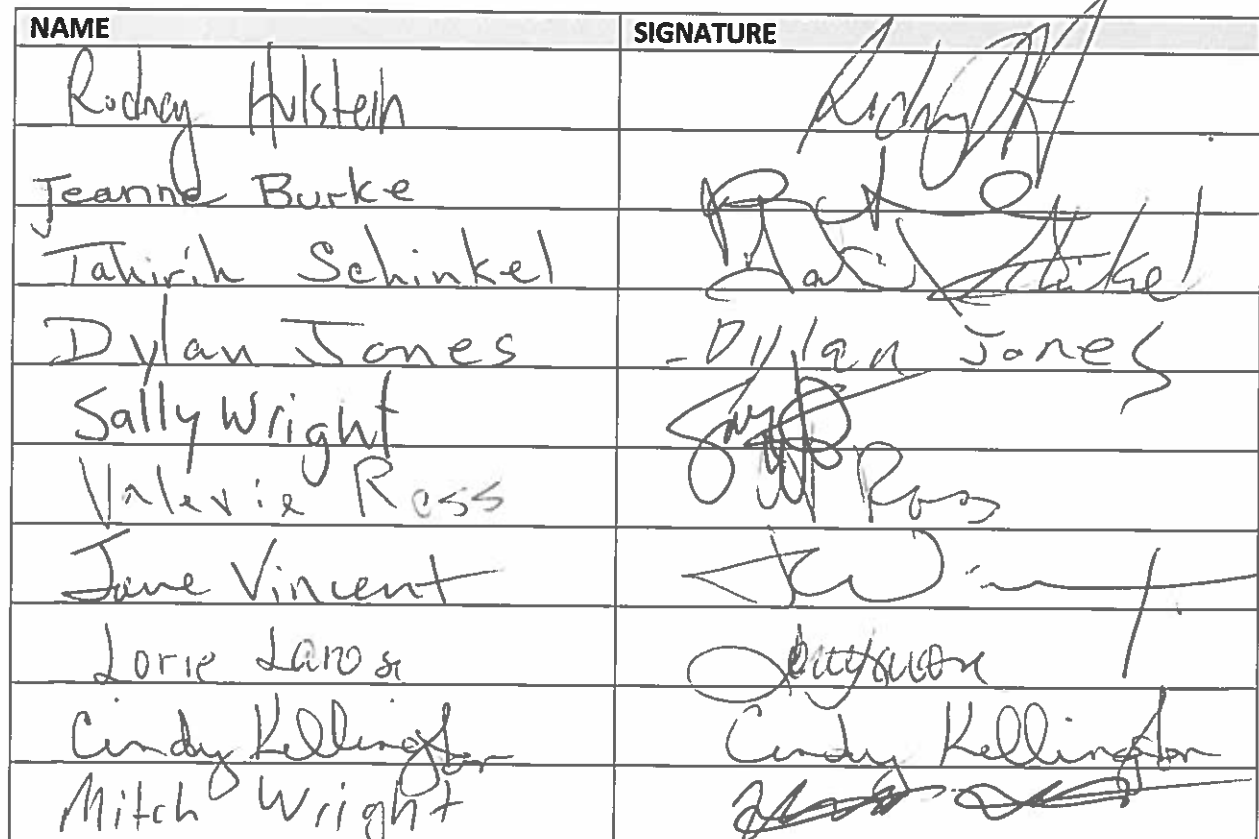 NAME SIGNATURE
Rodney Hulstein Rodney H
Jeanne Burke
Tahirih Schinkel Schinkel
Dylan Jones Dylan Jones
Sally Wright
Valerie Ross Ross
Jane Vincent
Lorie Larose
Cindy Kellington Cindy Kellington
Mitch Wright